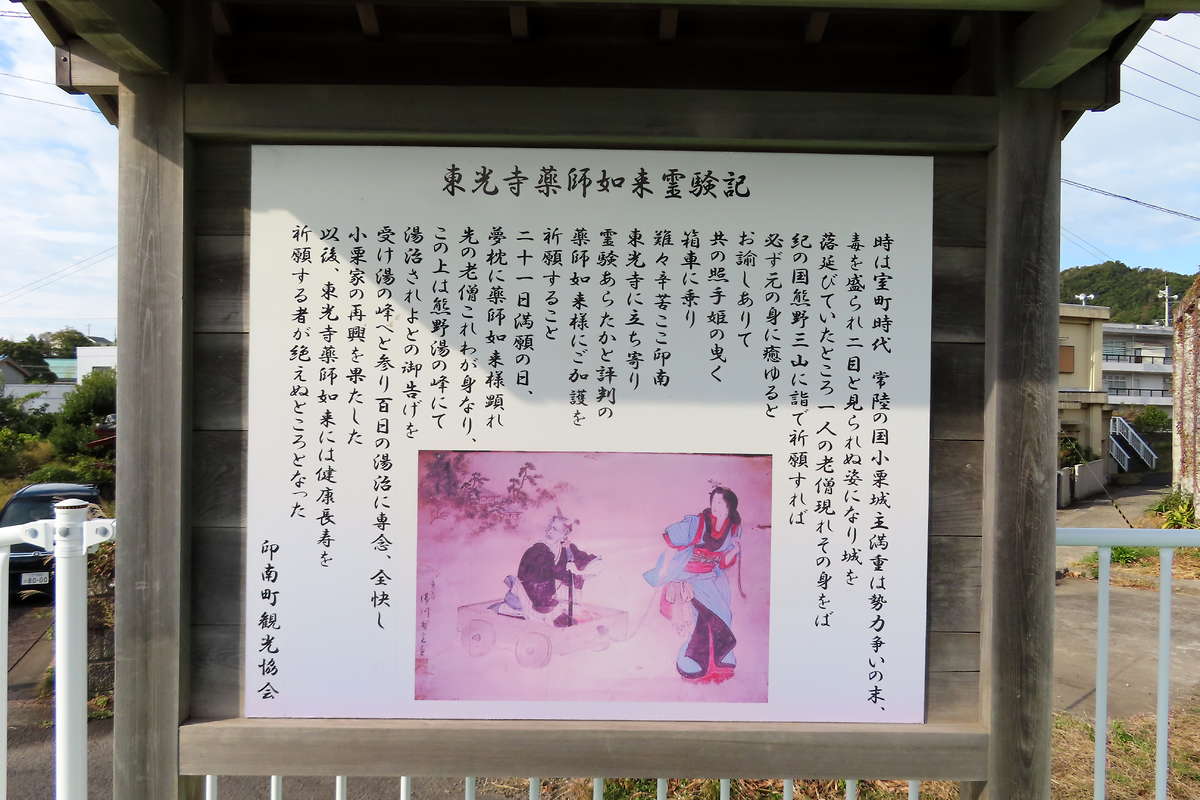 東光寺薬師如来霊験記
時は室町時代　常陸の国小栗城主満重は勢力争いの末、
毒を盛られ二目と見られぬ姿になり城を
落延びていたところ一人の老僧現れその身をば
紀の国熊野三山に詣で祈願すれば
必ず元の身に癒ゆると
お諭しありて
共の照手姫の曳く
箱車に乗り
難々辛苦ここ印南
東光寺に立ち寄り
霊験あらたかと評判の
薬師如来様にご加護を
祈願すること
二十一日満願の日、
夢枕に薬師如来様顕れ
先の老僧これわが身なり、
この上は熊野湯の峰にて
湯治されよとの御告げを
受け湯の峰へと参り百日の湯治に専念、全快し
小栗家の再興を果たした
以後、東光寺薬師如来には健康長寿を
祈願する者が絶えぬところとなった
印南町観光協会
80-00